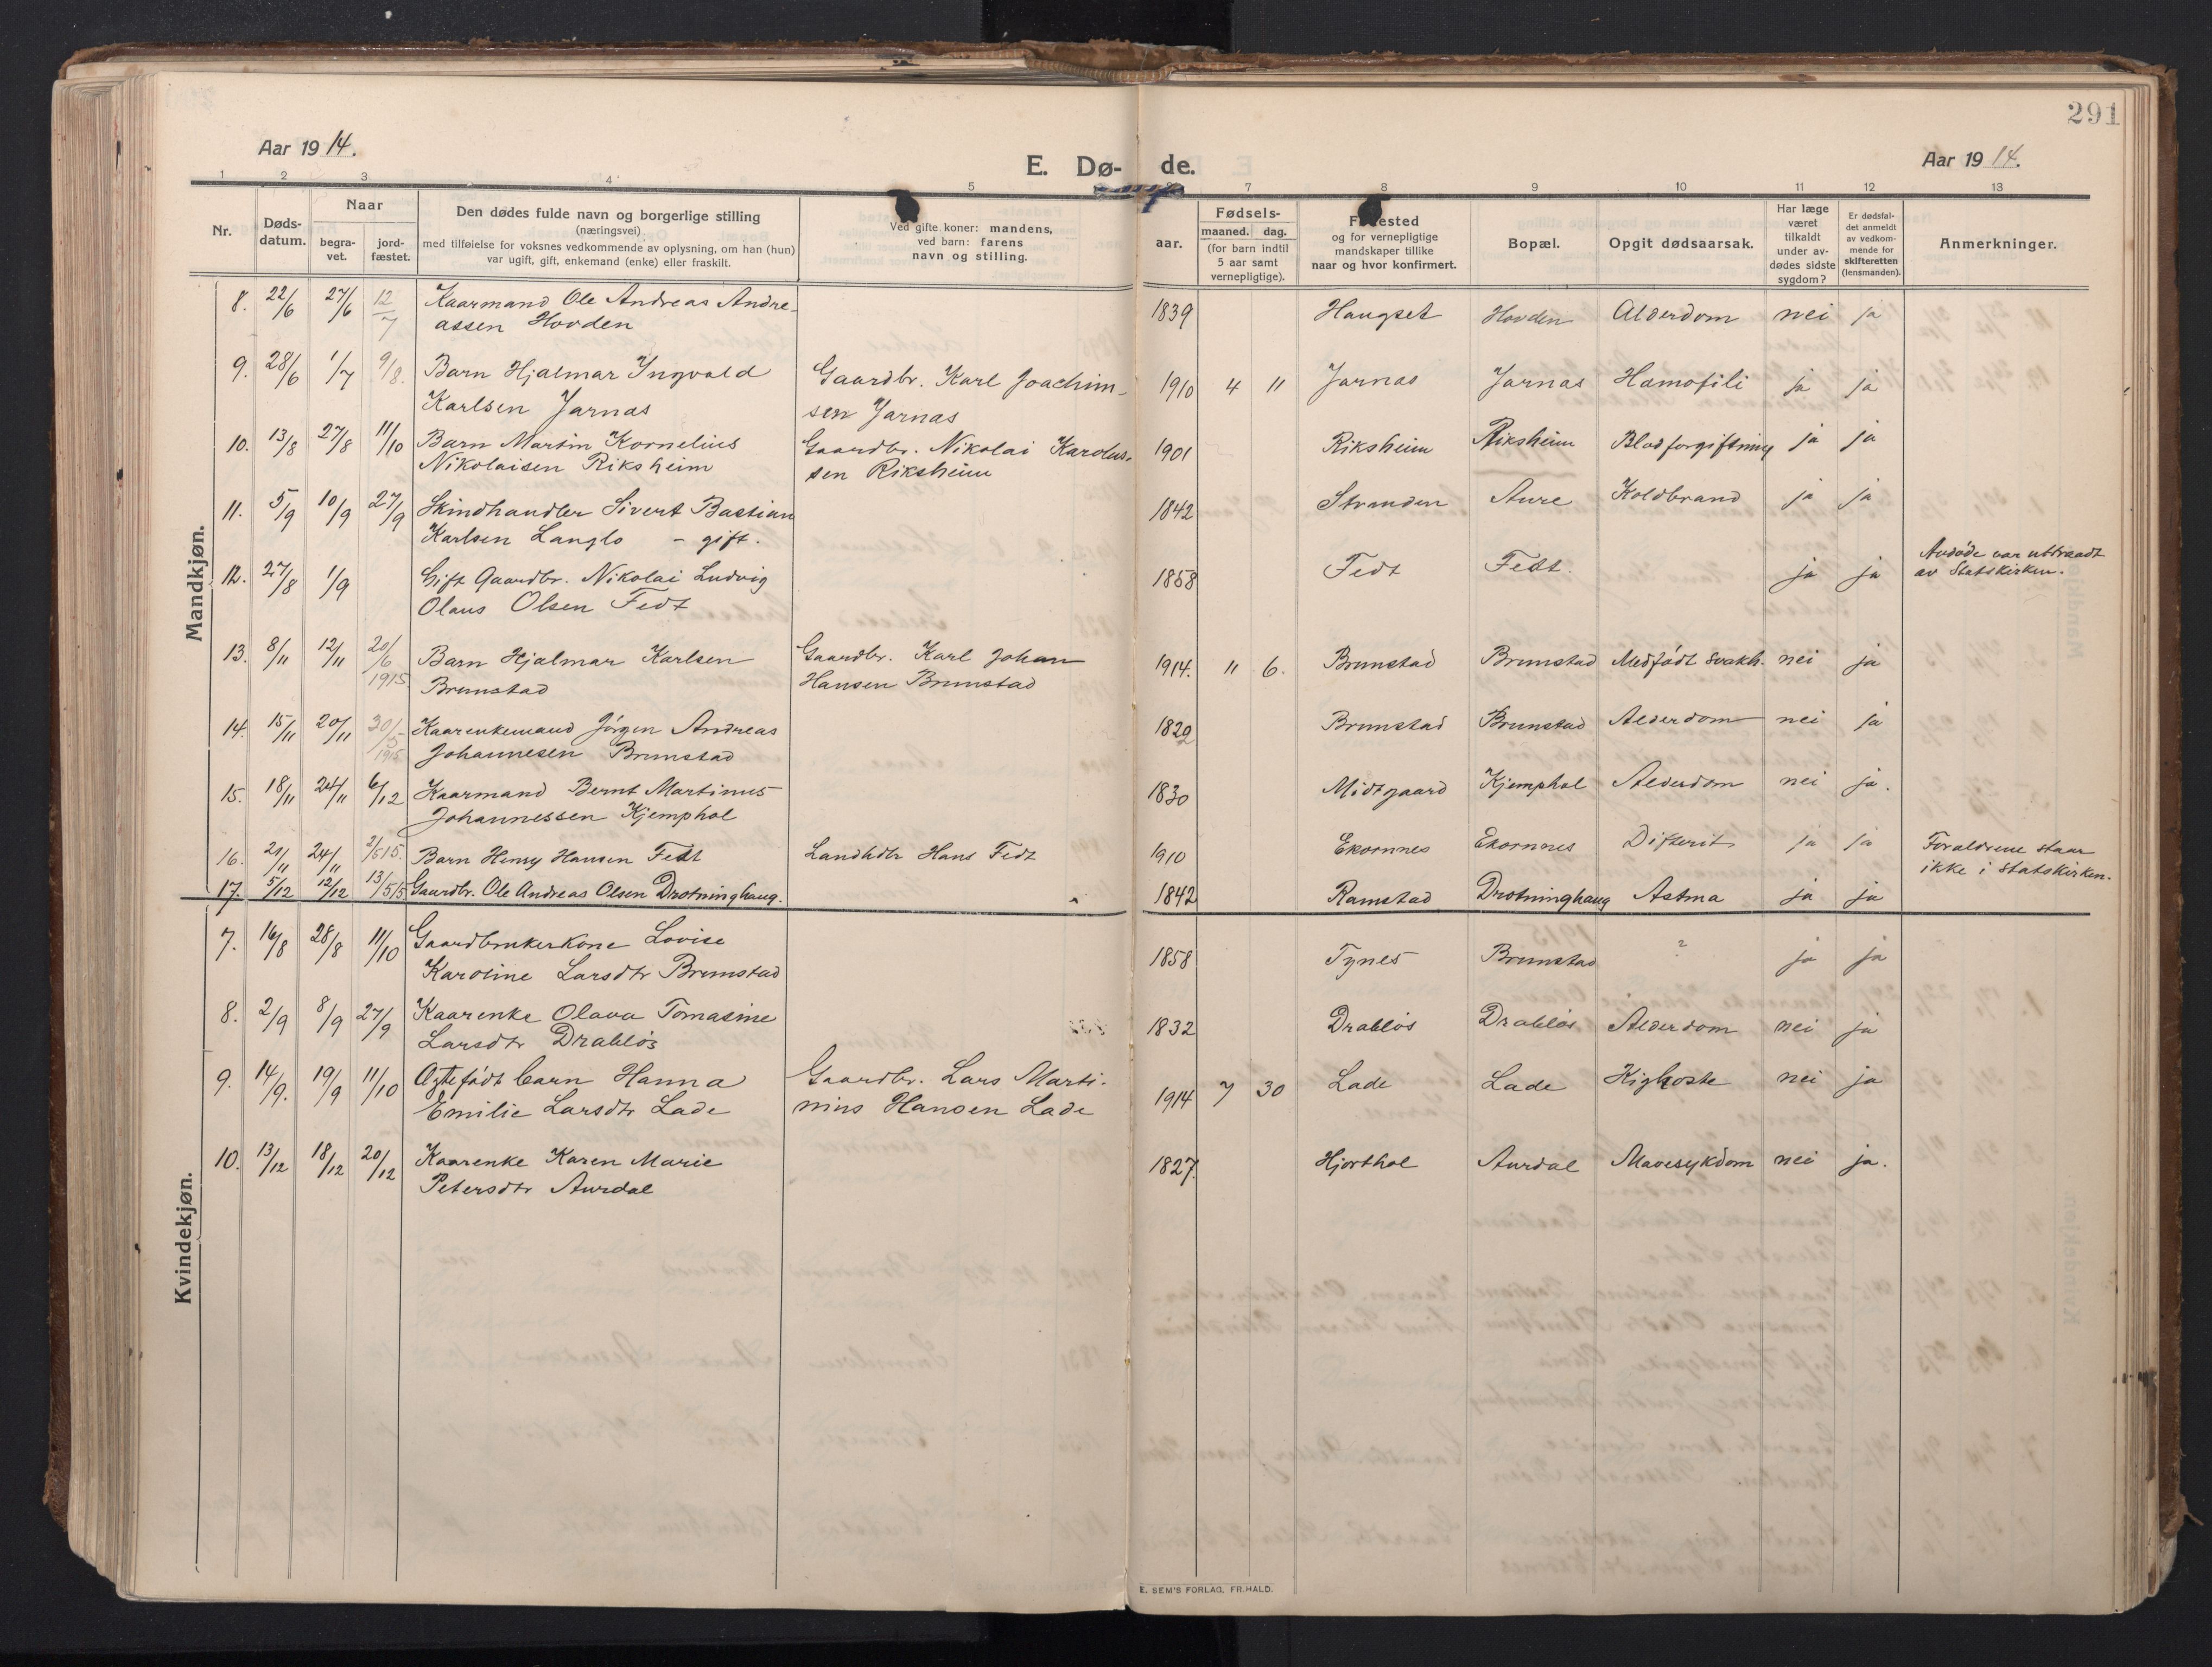 291
Aar 1914.
E. Dø- de.
Aar 1914.
1 2 3 4 5 7 8 9 10 11 12 13
Nr.
Døds-
datum.
Naar
begra-
vet.
jord-
fæstet.
Den dødes fulde navn og borgerlige stilling
(næringsvei)
med tilføielse for voksnes vedkommende av oplysning, om han (hun)
var ugift, gift, enkemand (enke) eller fraskilt.
Ved gifte koner: mandens,
ved barn: farens
navn og stilling.
aar.
Fødsels-
maaned. dag.
(for barn indtil
5 aar samt
vernepligtige).
og for vernepligtige
mandskaper tillike
naar og hvor konfirmert.
Bopæl.
Opgit dødsaarsak.
Har læge
været
tilkaldt
under av-
dødes sidste
sygdom?
Er dødsfal-
det anmeldt
av vedkom-
mende for
skifteretten
(lensmanden).
Anmerkninger.
Mandkjøn.
8. 22/6 27/6 12/7 Kaarmand Ole Andreas Andre- 1839 Haugset Hovden Alderdom nei ja
assen Hovden
9. 28/6 1/7 9/8. Barn Hjalmar Ingvald Gaardbr. Karl Joachim- 1910 4 11 Jarnas Jarnas Hamofili ja ja
Karlsen Jarnas sen Jarnas
10. 13/8 27/8 11/10 Barn Martin Kornelius Gaardbr. Nikolai Karolus- 1901 Riksheim Riksheim Blodforgiftning ja ja
Nikolaisen Riksheim sen Riksheim
11. 5/9 10/9 27/9 Skindhandler Sivert Bastian 1842 Stranden Aure Koldbrand ja ja
Karlsen Langlo - gift.
12. 27/8 1/9 Gift Gaardbr. Nikolai Ludvig 1858 Fedt Fedt. ja ja Avdøde var uttraadt
Olaus Olsen Fedt av Statskirken.
13. 8/11 12/11 20/6 1915 Barn Hjalmar Karlsen Gaardbr. Karl Johan 1914. 11 6. Brunstad Brunstad Medfødt svakh. nei ja
Brunstad Hansen Brunstad
14. 15/11 20/11 30/5 1915 Kaarenkemand Jörgen Andreas 1829 Brunstad Brunstad Alderdom nei ja
Johannesen Brunstad
15. 18/11 24/11 6/12 Kaarmand Bernt Martinus 1830 Midtgaard Kjemphol Alderdom nei ja.
Johannessen Kjemphol
16. 21/11 24/11 2/5 15. Barn Henry Hansen Fedt Landhdlr Hans Fedt 1910 Ekornnes Ekornnes Difterit ja ja Foraldrene staar
ikke i Statskirken.
17. 5/12 12/12 13/5 15 Gaardbr. Ole Andreas Olsen Drotninghaug. 1842 Ramstad Drotninghaug Astma ja ja
Kvindekjøn.
7. 16/8 28/8 11/10 Gaardbrukerkone Lovise 1858 Tynes Brunstad ? ja ja
Karoline Larsdtr Brunstad
8. 2/9 8/9 27/9 Kaarenke Olava Tomasine 1832 Drabløs Drabløs Alderdom nei ja
Larsdtr Drabløs
9. 14/9. 19/9 11/10 Ægtefødt barn Hanna Gaardbr. Lars Marti- 1914 7 30 Lade Lade Kighoste nei ja
Emilie Larsdtr Lade nius Hansen Lade
10. 13/12 18/12 20/12 Kaarenke Karen Marie 1827. Hjorthol Aurdal Mavesykdom nei ja.
Petersdtr Aurdal
E. SEM'S FORLAG, FR.HALD.